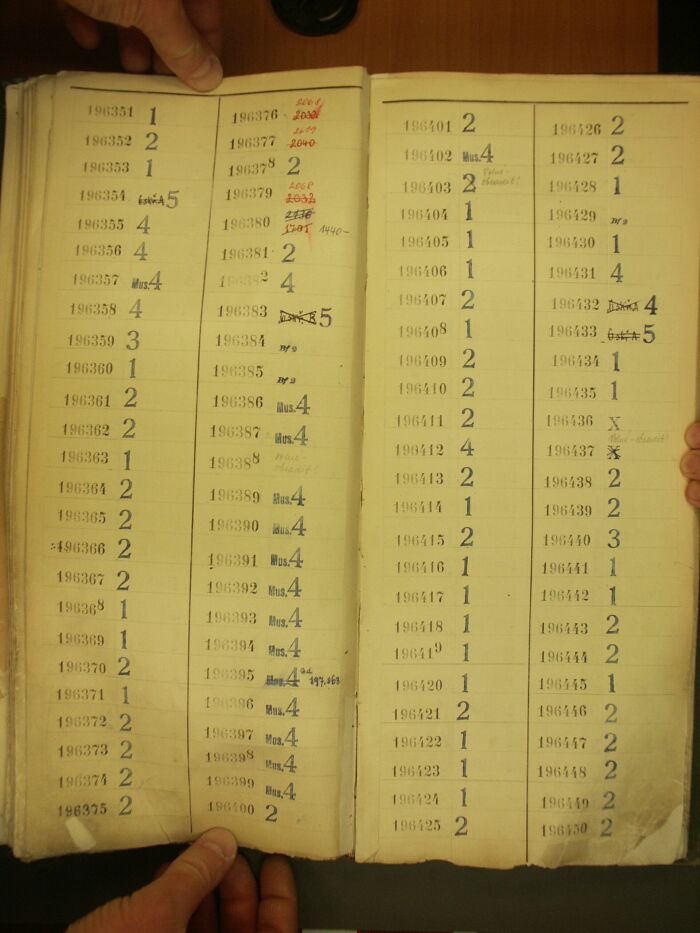 196351 1
196352 2
196353 1
196354 5
196355 4
196356 4
196357 Mus.4
196358 4
196359 3
196360 1
196361 2
196362 2
196363 1
196364 2
196365 2
196366 2
196367 2
196368 1
196369 1
196370 2
196371 1
196372 2
196373 2
196374 2
196375 2
2068
196376 2032
196377 2040
196378 2
2068
196379 2032
196380 1440-
196381 2
196382 4
196383 5
196384 Bf 2
196385 Bf 2
196386 Mus.4
196387 Mus.4
196388
196389 Mus.4
196390 Mus.4
196391 Mus.4
196392 Mus.4
196393 Mus.4
196394 Mus.4
196395 Mus.4 197.863
196396 Mus.4
196397 Mus.4
196398 Mus.4
196399 Mus.4
196400 2
196401 2
196402 Mus.4
196403 2
196404 1
196405 1
196406 1
196407 2
196408 1
196409 2
196410 2
196411 2
196412 4
196413 2
196414 1
196415 2
196416 1
196417 1
196418 1
196419 1
196420 1
196421 2
196422 1
196423 1
196424 1
196425 2
196426 2
196427 2
196428 1
196429 Bf 2
196430 1
196431 4
196432 4
196433 5
196434 1
196435 1
196436 X
196437 X
196438 2
196439 2
196440 3
196441 1
196442 1
196443 2
196444 2
196445 1
196446 2
196447 2
196448 2
196449 2
196450 2